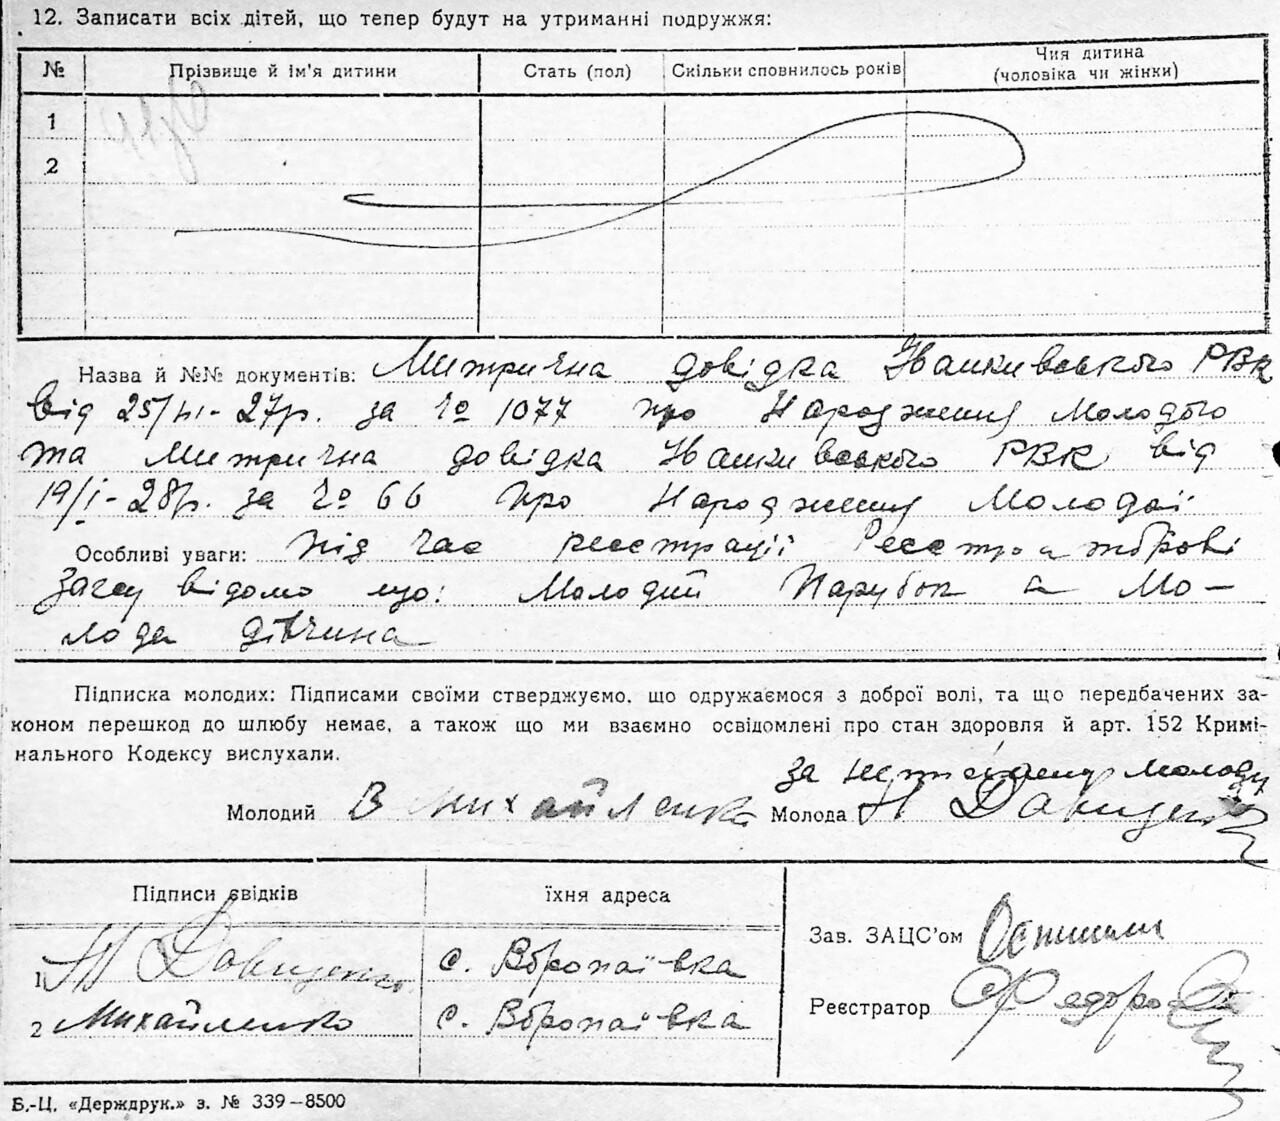 12. Записати всіх дітей, що тепер будут на утриманні подружжя:
№ Прізвище й ім'я дитини Стать (пол) Скільки сповнилось років Чия дитина
(чоловіка чи жінки)
1
2
Назва й №№ документів: Митрична довідка Іванкивського РВК
від 25/ІІІ-27р. за № 1077 про Народження Молодого
та Митрична довідка Іванкивського РВК від
19/І-28р. за № 66 про Народження Молодої
Особливі уваги: Під час реєстрації Реєстраторові
Загсу відомо що: Молодий Парубок а Мо-
лода дівчина
Підписка молодих: Підписами своїми стверджуємо, що одружаємося з доброї волі, та що передбачених за-
коном перешкод до шлюбу немає, а також що ми взаємно освідомлені про стан здоровля й арт. 152 Кримі-
нального Кодексу вислухали.
за молоду
Молодий В Михайленко Молода Н Давиденко
Підписи свідків їхня адреса
1 Н Давиденко с. Воропаївка
2 Михайленко с. Воропаївка
Зав. ЗАЦС'ом
Реєстратор
Б.-Ц. «Держдрук.» з. № 339–8500